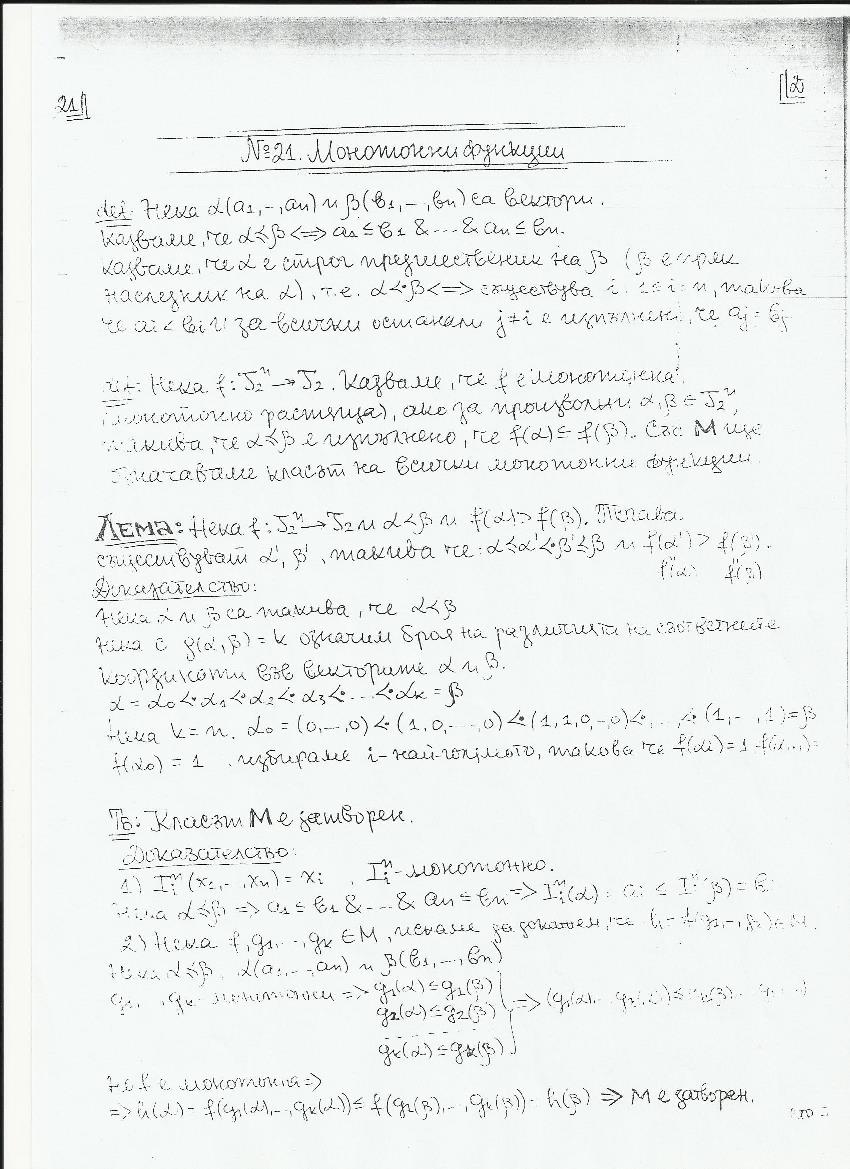 21
2
№21. Монотонни функции
def: Нека α(a1,-,an) и β(b1,-,bn) са вектори.
Казваме, че α≼β <=> a1≤b1 &...& an≤bn.
Казваме, че α е строг предшественик на β (β е пряк
наследник на α), т.е. α<·β <=> съществува i, 1≤i≤n, такова
че ai<bi и за всички останали j≠i е изпълнено, че aj=bj
def: Нека f: J2^n→J2. Казваме, че f е монотонна
(монотонно растяща), ако за произволни α,β∈J2^n,
такива, че α≼β е изпълнено, че f(α)≤f(β). Със M ще
означаваме класът на всички монотонни функции.
ЛЕМА: Нека f: J2^n→J2 и α<β и f(α)>f(β). Тогава
съществуват α', β', такива че: α≼α'<·β'≼β и f(α')>f(β').
f(α) f(β)
Доказателство:
Нека α и β са такива, че α<β
Нека с ρ(α,β)=k означим броя на
координати във векторите α и β.
α=α0<·α1<·α2<·α3<·...<·αk=β
Нека k=n. α0=(0,-,0)<·(1,0,-,-,0)<·(1,1,0,-,0)<·...<·(1,-,1)=β
f(α0)=1 избираме i-най-голямото, такова че f(αi)=1
Тв: Класът M е затворен.
Доказателство:
1) Ii^n(x1,-,xn)=xi, Ii^n-монотонно.
Нека α≼β => a1≤b1 &...& an≤bn => Ii^n(α)=ai≤Ii^n(β)=bi
2) Нека f,g1,..,gk∈M, искаме да докажем, че h=f(g1,-,gk)∈M.
Нека α≼β, α(a1,..,an) и β(b1,-,bn)
g1,..,gk-монотонни => g1(α)≤g1(β)
g2(α)≤g2(β)
gk(α)≤gk(β)
=> (g1(α),..,gk(α))≤
f е монотонна =>
=> h(α)=f(g1(α),-,gk(α))≤f(g1(β),-,gk(β))=h(β) => M е затворен.